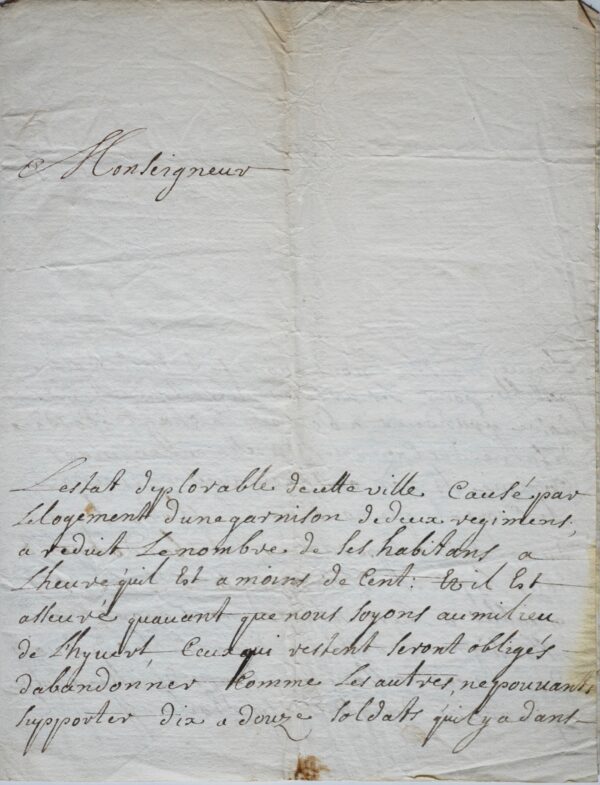 Monseigneur
Lestat deplorable de cette ville Causé par
Le logement dune garnison de deux regimens,
a reduit Le nombre de ses habitans a
L'heure quil Est a moins de Cent: Et il Est
asseuré quauant que nous soyons au milieu
de L'hyuert Ceux qui restent seront obligés
dabandonner Comme Les autres, ne pouuants
supporter dix a douze soldats quil y a dans